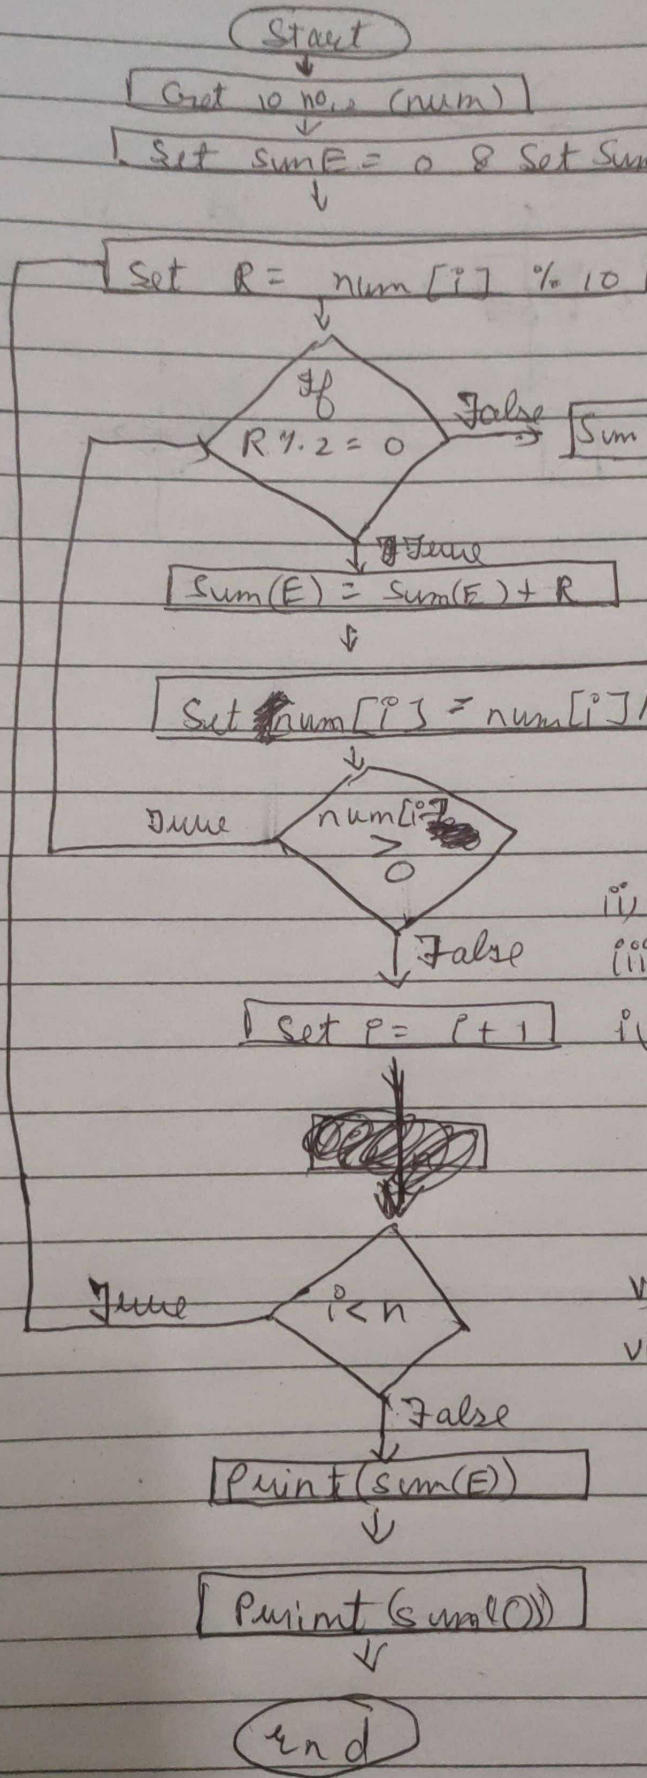 Start
Get 10 no.s (num)
Set sumE = 0 & Set Sum
Set R = num[i] % 10
If
R % 2 = 0
False
Sum
True
Sum(E) = Sum(E) + R
Set num[i] = num[i] /
num[i]
>
0
True
ii)
False
(iii
Set i = i + 1
iv
i < n
True
v
v
False
Print(sum(E))
Print(sum(O))
End